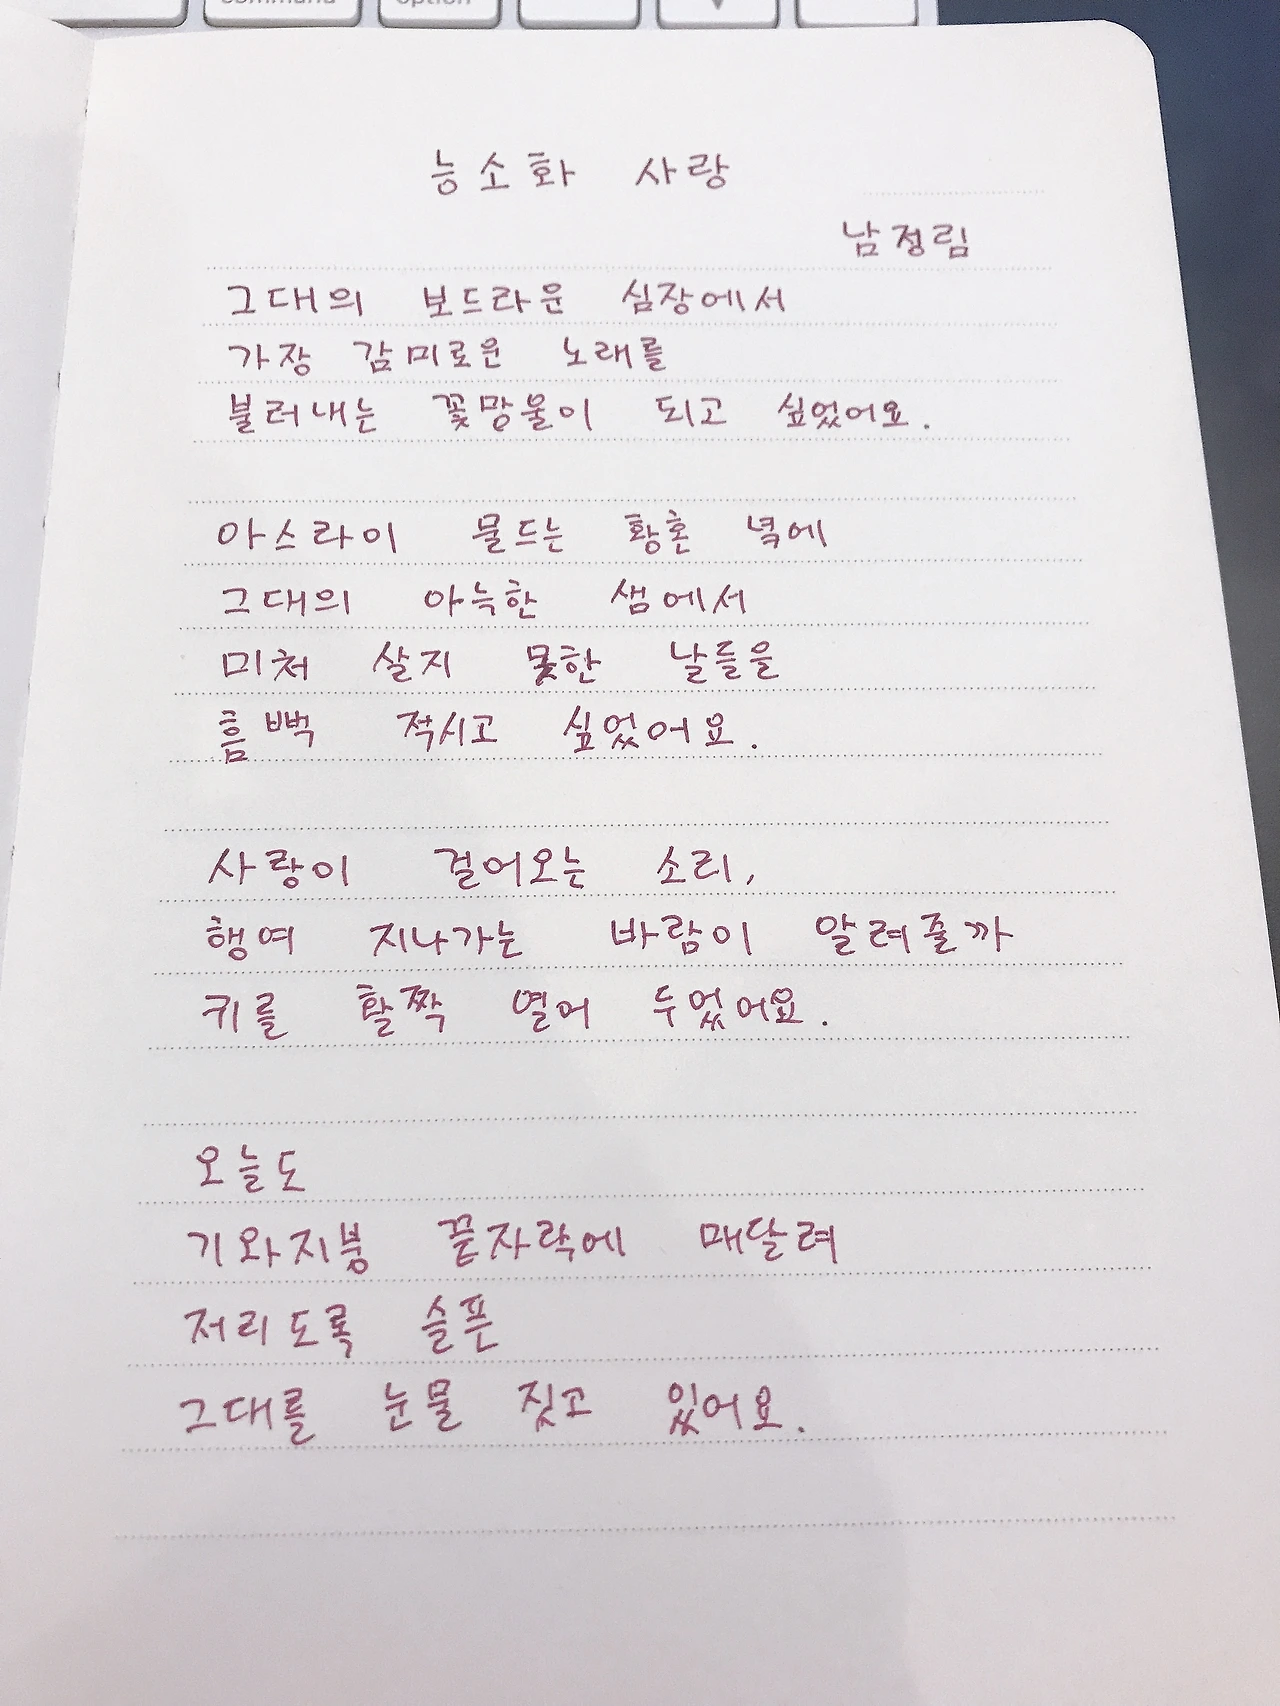 command
option
능소화 사랑
남정림
그대의 보드라운 심장에서
가장 감미로운 노래를
불러내는 꽃망울이 되고 싶었어요.
아스라이 물드는 황혼 녘에
그대의 아늑한 샘에서
미처 살지 못한 날들을
흠뻑 적시고 싶었어요.
사랑이 걸어오는 소리,
행여 지나가는 바람이 알려줄까
귀를 활짝 열어 두었어요.
오늘도
기와지붕 끝자락에 매달려
저리도록 슬픈
그대를 눈물 짓고 있어요.